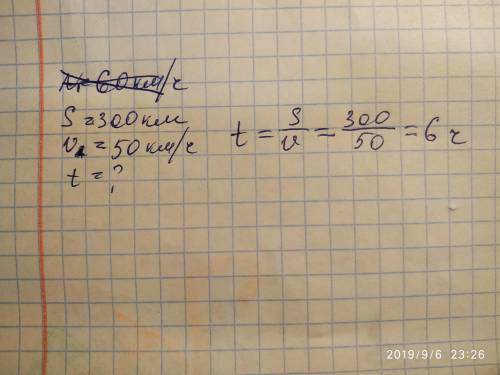 S = 300 км
v = 50 км/ч
t = ?
t = S/v = 300/50 = 6 ч
2019/9/6 23:26